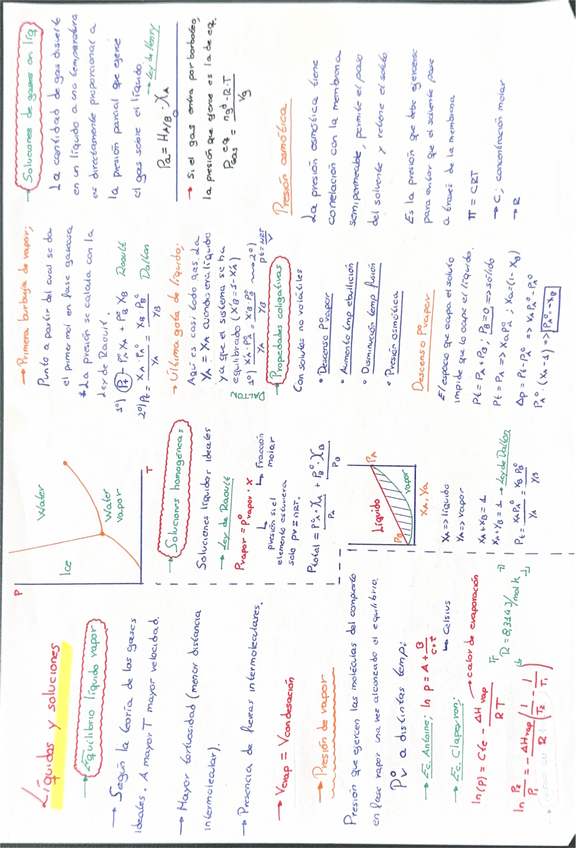 Líquidos y soluciones
→ Equilibrio líquido vapor
→ Según la teoría de los gases
ideales. A mayor T mayor velocidad.
→ Mayor tortuosidad (menor distancia
intermolecular).
→ Presencia de fuerzas intermoleculares.
→ Vevap = Vcondesación
→ Presión de vapor
Presión que ejercen las moléculas del compuesto
en fase vapor una vez alcanzado el equilibrio.
P_v^o a distintas temp:
→ Ec. Antoine: ln p = A + B/(C+T)
→ Celsius
→ Ec. Clapeyron:
ln(p) = Cte - ΔHvap/RT → calor de evaporación
R = 8,314 J/mol K
ln P2/P1 = -ΔHvap/R (1/T2 - 1/T1)
P
Water
Ice
Water
vapor
T
→ Soluciones homogéneas
Soluciones líquidas ideales
→ Ley de Raoult
Pvapor = P°vapor · x
→ Fracción
molar
presión si el
elemento estuviera
solo pv = nRT.
Ptotal = P°A · XA + P°B · XB
PA PB
Líquido
Vapor
PB
PA
XA, YA
XA => líquido
YA => vapor
XA + XB = 1
YA + YB = 1 → Ley de Dalton
Pt = XA P°A/YA = XB P°B/YB
→ Primera burbuja de vapor:
Punto a partir del cual se da
el primer mol en fase gaseosa
*La presión se calcula con la
Ley de Raoult.
1°) Pt = P°A XA + P°B XB Raoult
2°) Pt = XA · P°A/YA = XB · P°B/YB Dalton
→ Última gota de líquido:
Aquí es casi todo gas. La
YA = XA cuando era líquido
ya que el sistema se ha
equilibrado (XB = 1 - XA)
1°) XA · P°A/YA = XB · P°B/YB
→ Propiedades coligativas
Con solutos no volátiles
• Descenso P° vapor
• Aumento temp ebullición
• Disminución temp fusión
• Presión osmótica
Descenso P° vapor
El espacio que ocupa el soluto
impide que lo ocupe el líquido.
Pt = PA + PB; PB = 0 => sólido
Pt = PA => XA P°A; XA = (1 - XB)
Δp = Pt - P°A => XA P°A - P°A
P°A · (XA - 1) => P°A · -XB
→ Soluciones de gases en líq
La cantidad de gas disuelto
en un líquido a una temperatura
es directamente proporcional a
la presión parcial que ejerce
el gas sobre el líquido.
PA = HA/B · XA → Ley de Henry
→ Si el gas entra por borboteo,
la presión que ejerce es la de eq.
P_gas^eq = ng · R · T/Vg
Presión osmótica
La presión osmótica tiene
correlación con la membrana
semipermeable, permite el paso
del solvente y retiene el soluto
Es la presión que debe ejercerse
para evitar que el solvente pase
a través de la membrana
π = CRT
→ C: concentración molar
→ R